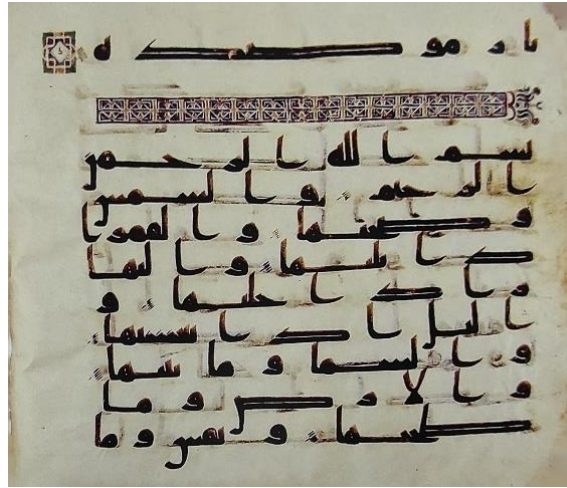 نار موصده
بسم الله الرحمن
الرحيم والشمس
وضحيها والقمر ا
ذا تليها والنها
ر اذا جليها و
اليل اذا يغشيها
والسما وما بنيها
والارض وما
طحيها ونفس وما